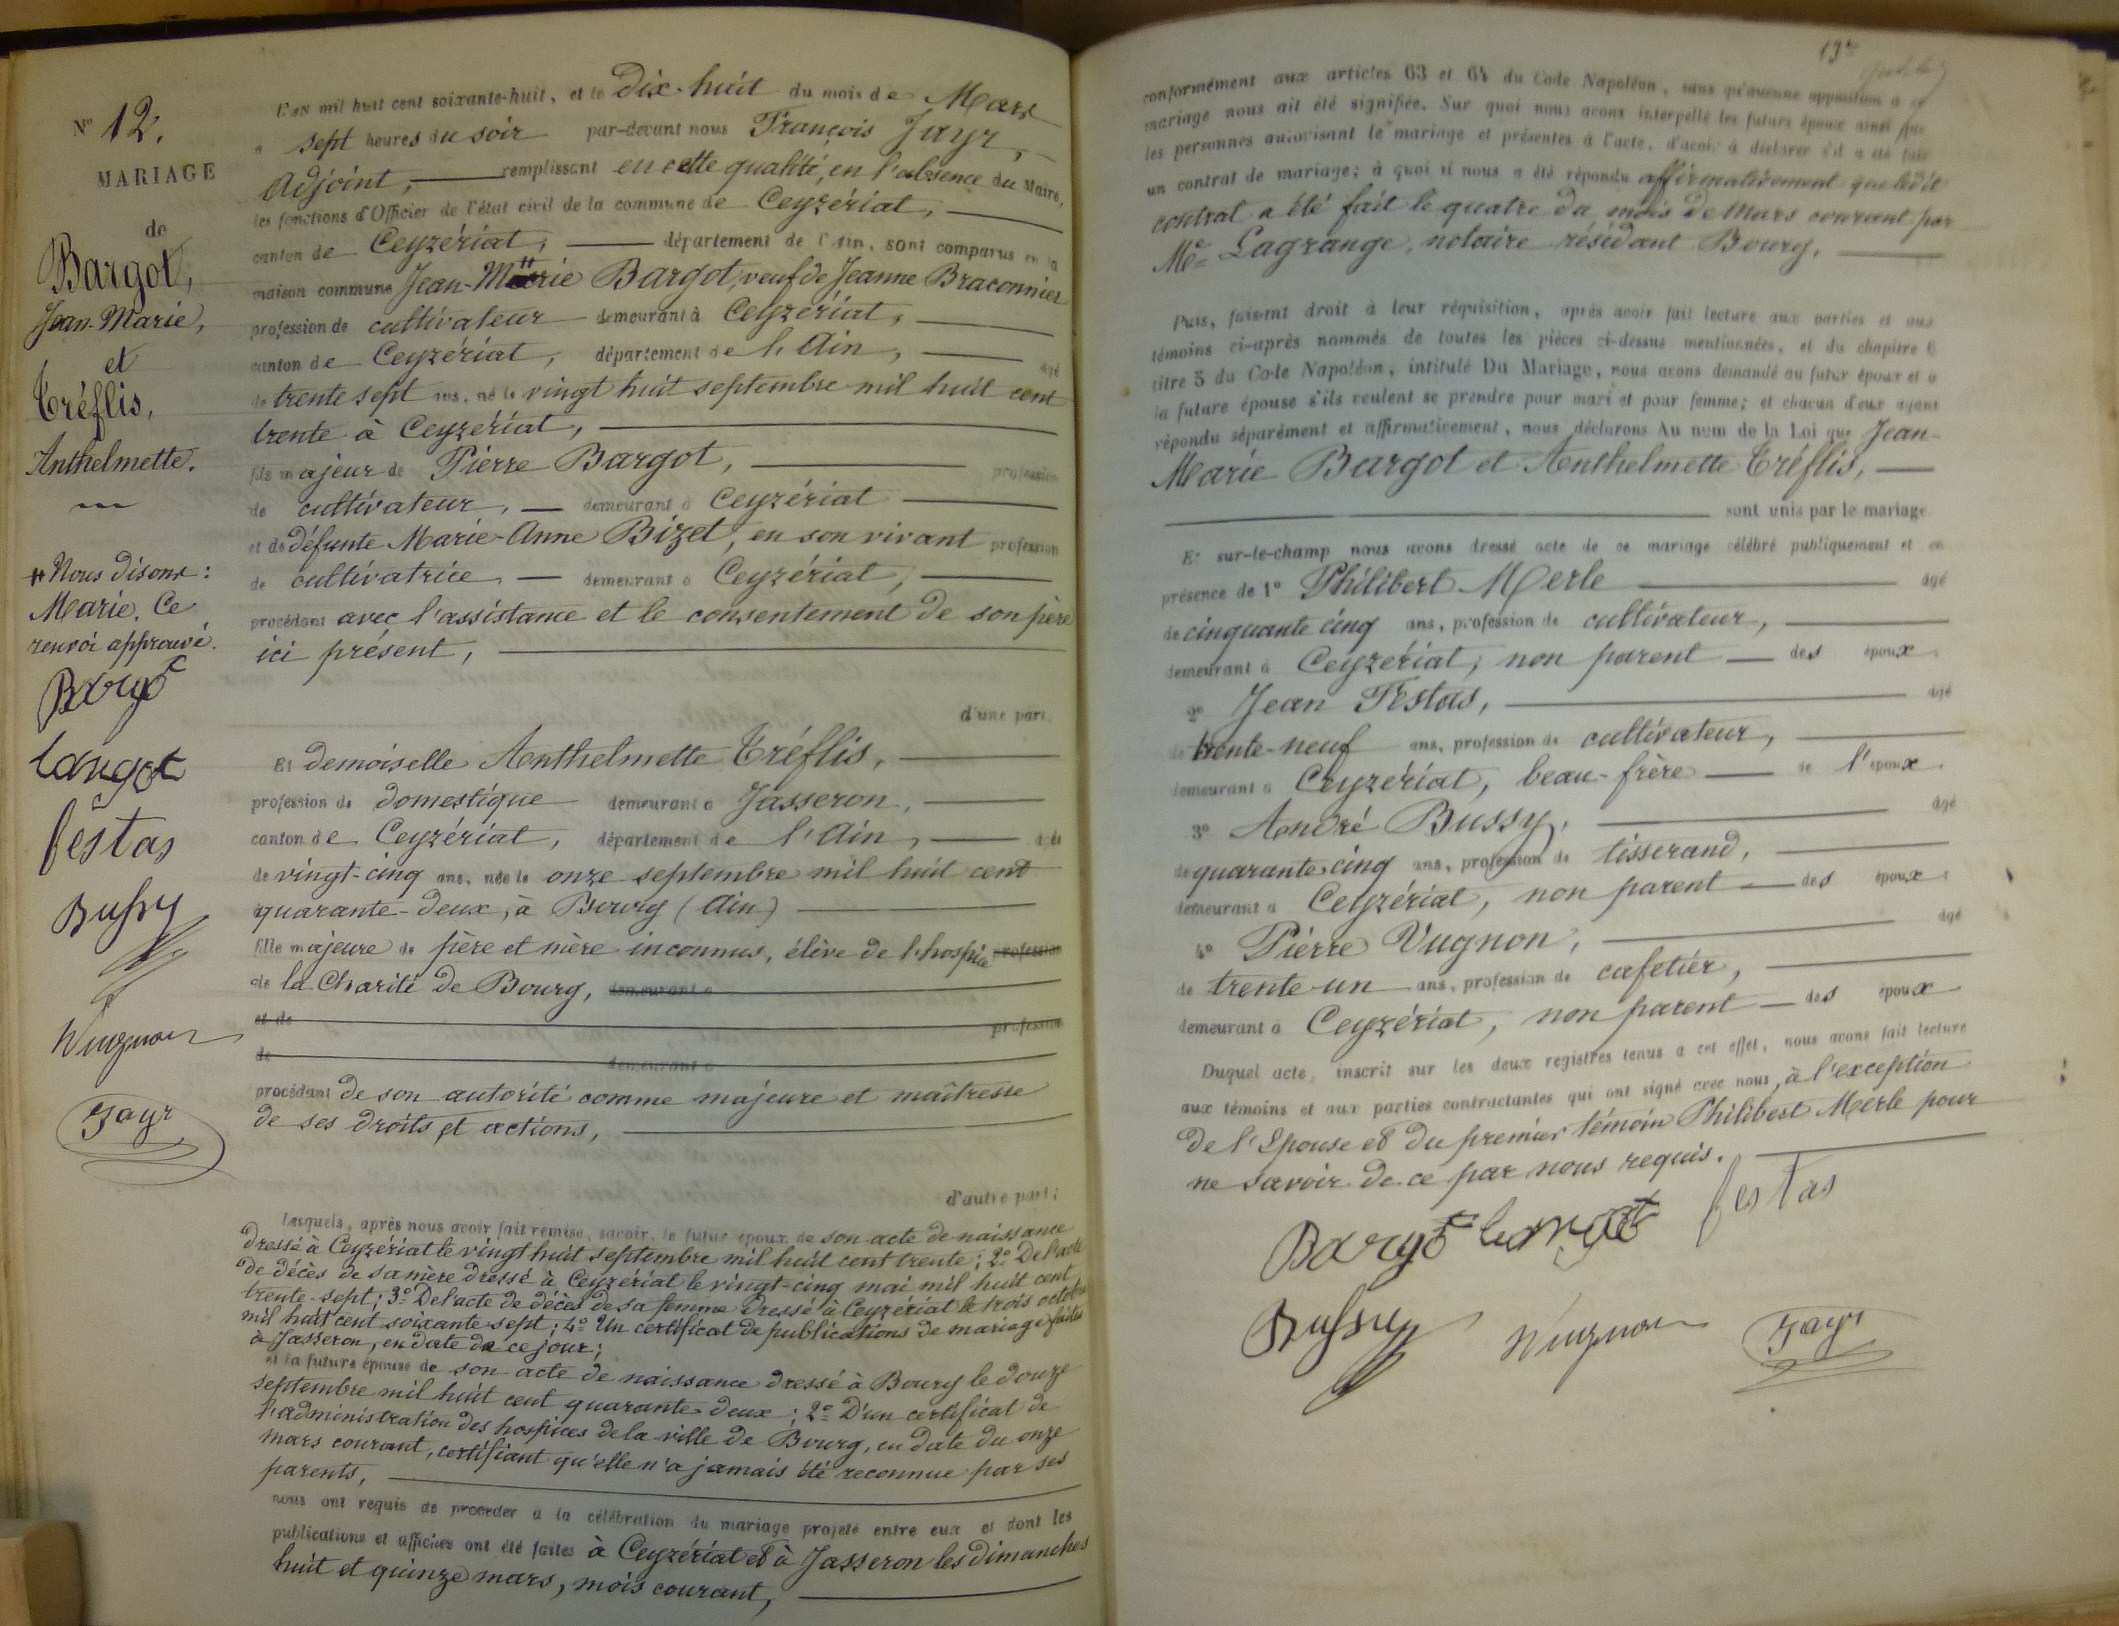 N° 12.
MARIAGE
de
Bargot,
Jean-Marie,
et
Tréflis,
Anthelmette.
# Nous disons :
Marie. Ce
renvoi approuvé.
Bargot
Langot
festas
Bussy
Vugnon
Jayr
L'an mil huit cent soixante-huit, et le Dix-huit du mois de Mars
à sept heures du soir par-devant nous François Jayr,
Adjoint, remplissant en cette qualité, en l'absence du Maire,
les fonctions d'Officier de l'état civil de la commune de Ceyzériat,
canton de Ceyzériat, département de l'Ain, sont comparus en la
maison commune Jean-Marie Bargot, veuf de Jeanne Braconnier
profession de cultivateur demeurant à Ceyzériat,
canton de Ceyzériat, département de l'Ain, âgé
de trente sept ans, né le vingt huit septembre mil huit cent
trente à Ceyzériat,
fils majeur de Pierre Bargot, profession
de cultivateur, demeurant à Ceyzériat
et de défunte Marie-Anne Bizet, en son vivant profession
de cultivatrice, demeurant à Ceyzériat,
procédant avec l'assistance et le consentement de son père
ici présent,
d'une part,
Et demoiselle Anthelmette Tréflis,
profession de domestique demeurant à Jasseron,
canton de Ceyzériat, département de l'Ain, âgée
de vingt-cinq ans, née le onze septembre mil huit cent
quarante-deux, à Bourg (Ain)
fille majeure de père et mère inconnus, élève de l'hospice profession
de la Charité de Bourg, demeurant à
et de profession
de demeurant à
procédant de son autorité comme majeure et maîtresse
de ses droits et actions,
d'autre part;
Lesquels, après nous avoir fait remise, savoir, le futur époux de son acte de naissance
dressé à Ceyzériat le vingt huit septembre mil huit cent trente ; 2° De l'acte
de décès de sa mère dressé à Ceyzériat le vingt-cinq mai mil huit cent
trente-sept ; 3° De l'acte de décès de sa femme dressé à Ceyzériat le trois octobre
mil huit cent soixante sept ; 4° Un certificat de publications de mariage faites
à Jasseron, en date de ce jour ;
et la future épouse de son acte de naissance dressé à Bourg le douze
septembre mil huit cent quarante-deux ; 2° D'un certificat de
l'administration des hospices de la ville de Bourg, en date du onze
mars courant, certifiant qu'elle n'a jamais été reconnue par ses
parents,
nous ont requis de procéder à la célébration du mariage projeté entre eux et dont les
publications et affiches ont été faites à Ceyzériat et à Jasseron les dimanches
huit et quinze mars, mois courant,
conformément aux articles 63 et 64 du Code Napoléon, sans qu'aucune opposition à ce
mariage nous ait été signifiée. Sur quoi nous avons interpellé les futurs époux ainsi que
les personnes autorisant le mariage et présentes à l'acte, d'avoir à déclarer s'il a été fait
un contrat de mariage; à quoi il nous a été répondu affirmativement que ledit
contrat a été fait le quatre du mois de Mars courant par
Me Lagrange, notaire résidant Bourg,
Puis, faisant droit à leur réquisition, après avoir fait lecture aux parties et aux
témoins ci-après nommés de toutes les pièces ci-dessus mentionnées, et du chapitre 6
titre 5 du Code Napoléon, intitulé Du Mariage, nous avons demandé au futur époux et à
la future épouse s'ils veulent se prendre pour mari et pour femme; et chacun d'eux ayant
répondu séparément et affirmativement, nous déclarons Au nom de la Loi que Jean-
Marie Bargot et Anthelmette Tréflis,
sont unis par le mariage
Et sur-le-champ nous avons dressé acte de ce mariage célébré publiquement et en
présence de 1° Philibert Merle âgé
de cinquante cinq ans, profession de cultivateur,
demeurant à Ceyzériat, non parent des époux.
2° Jean Festas, âgé
de trente-neuf ans, profession de cultivateur,
demeurant à Ceyzériat, beau-frère de l'époux.
3° André Bussy, âgé
de quarante-cinq ans, profession de tisserand,
demeurant à Ceyzériat, non parent des époux.
4° Pierre Vugnon, âgé
de trente-un ans, profession de cafetier,
demeurant à Ceyzériat, non parent des époux
Duquel acte, inscrit sur les deux registres tenus à cet effet, nous avons fait lecture
aux témoins et aux parties contractantes qui ont signé avec nous, à l'exception
de l'Epouse et du premier témoin Philibert Merle pour
ne savoir de ce par nous requis.
Bargot Langot festas
Bussy Vugnon Jayr